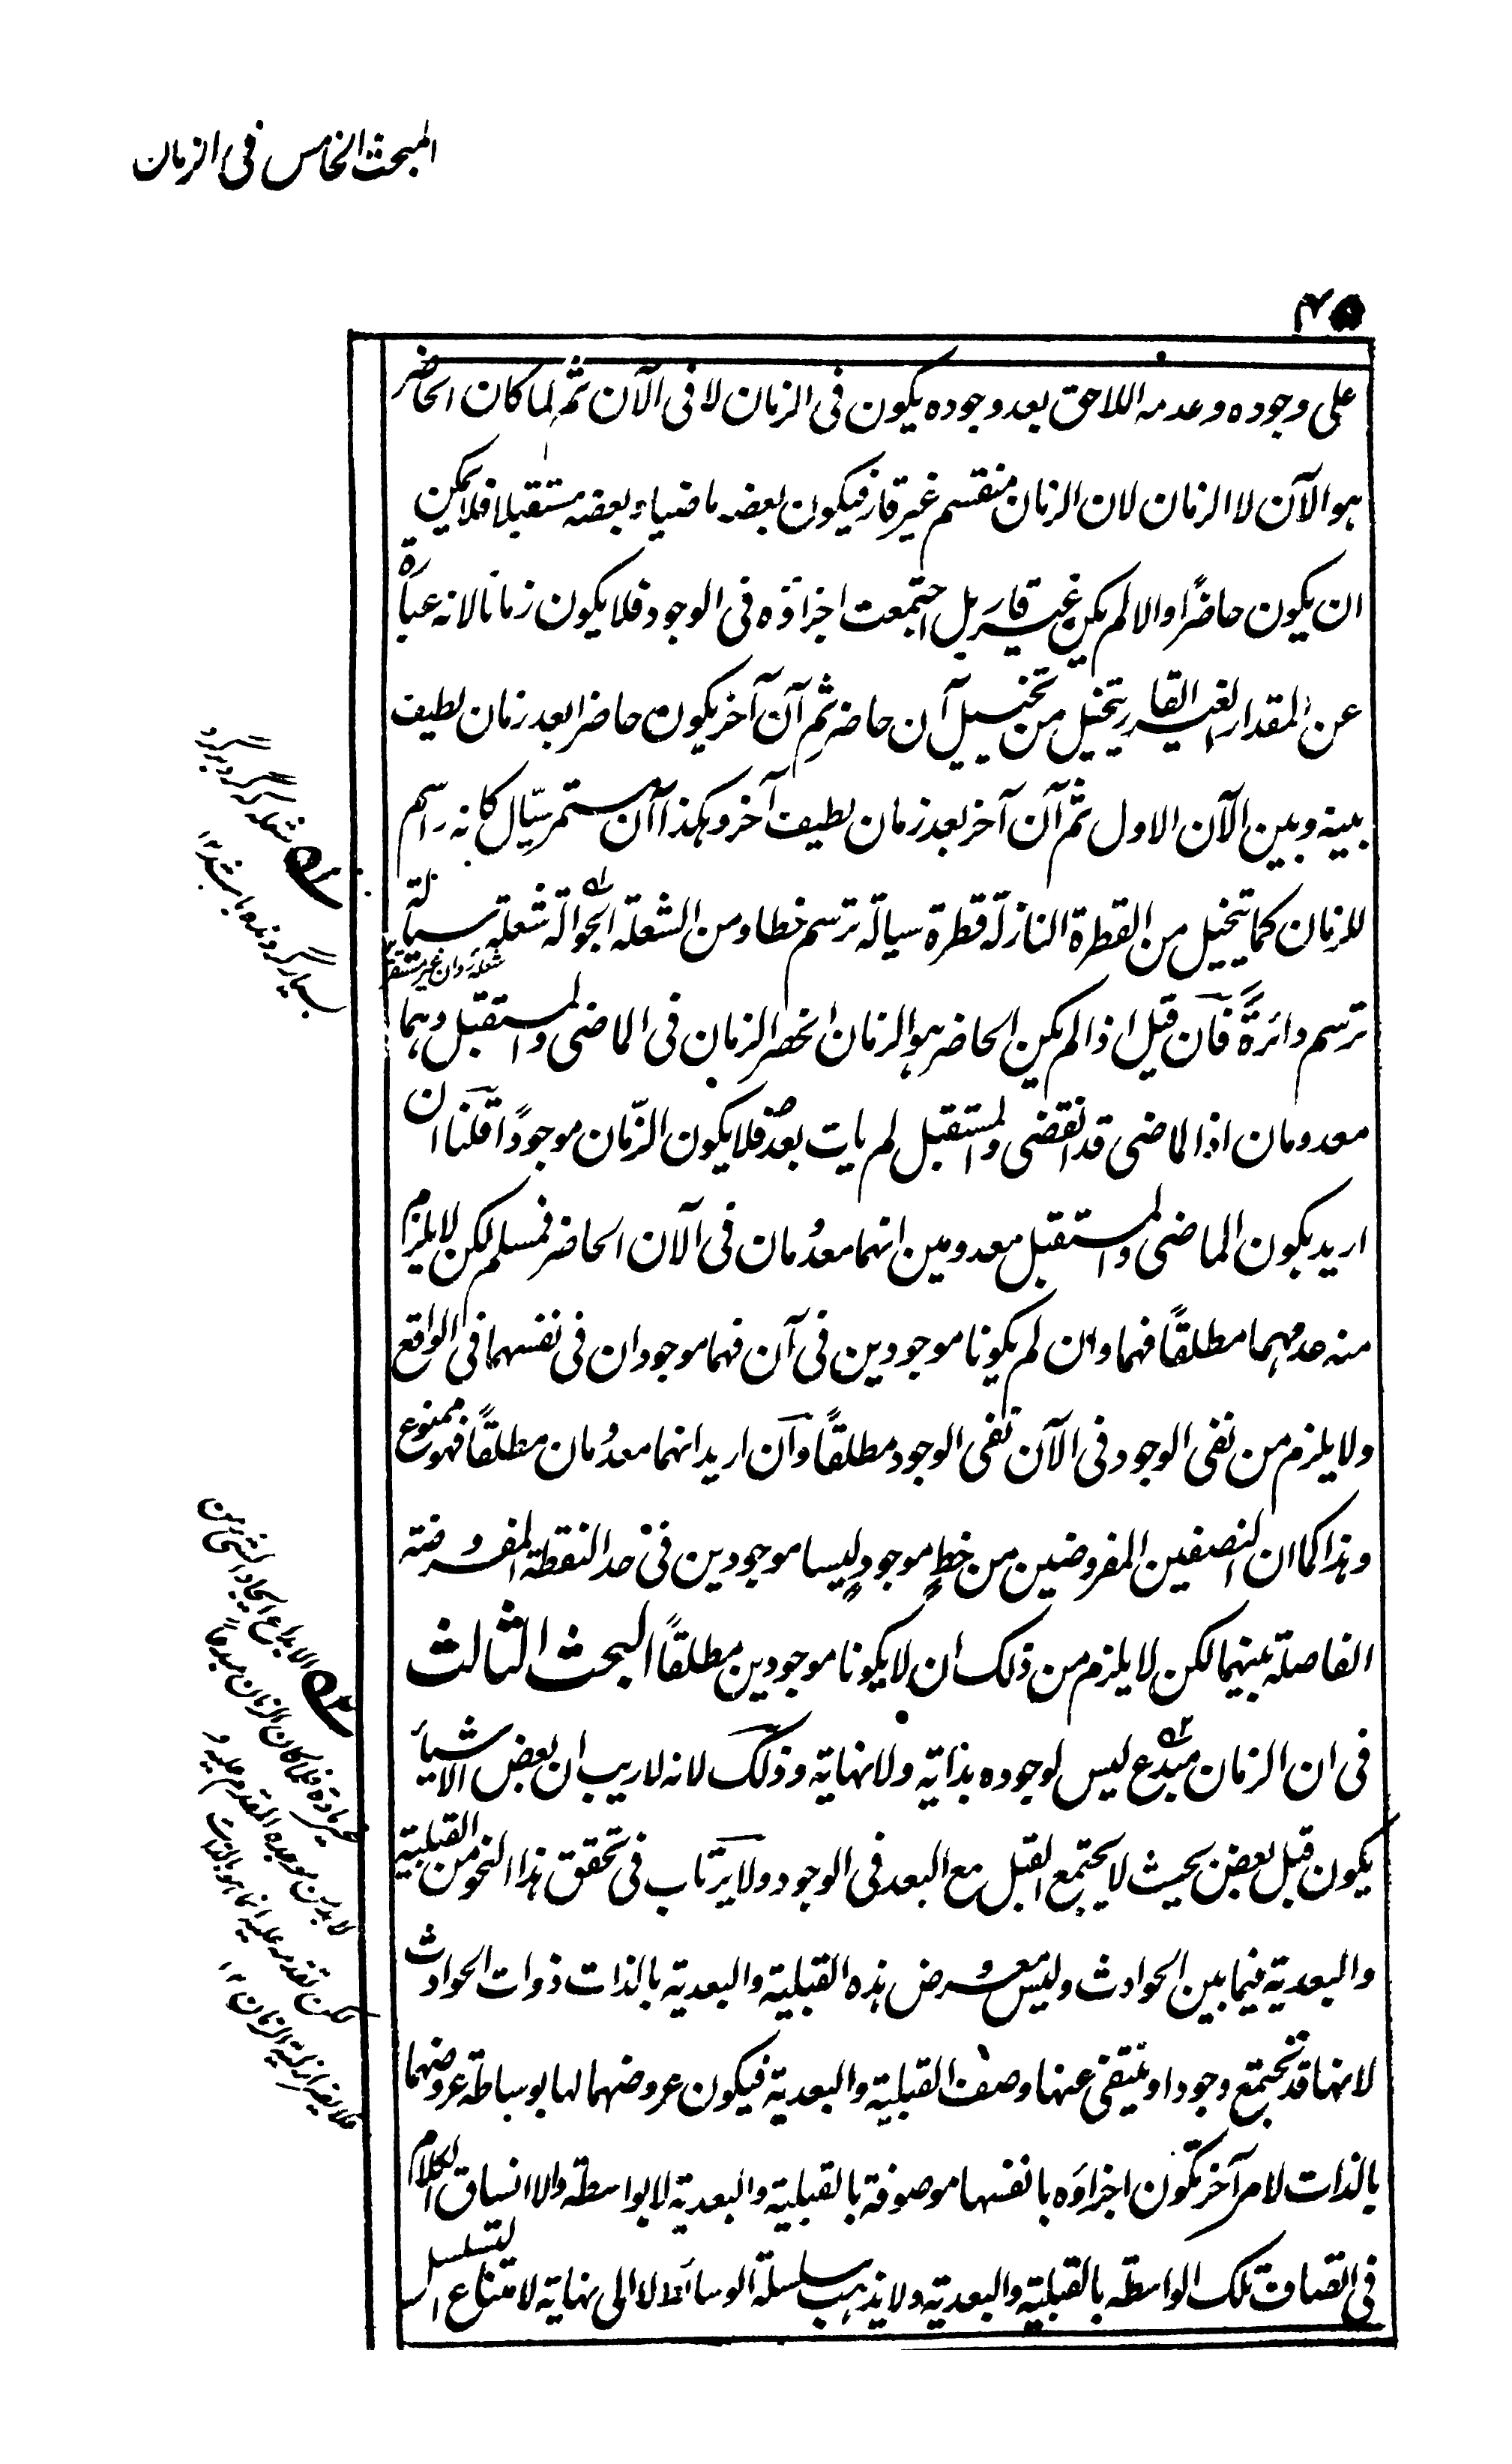 المبحث الخامس فی الزمان
٤٥
علی وجوده وعدمه اللاحق بعد وجوده یکون فی الزمان لا فی الآن ثم لما کان الحاضر
هو الآن لا الزمان لان الزمان منقسم غیر قار فیکون بعضه ماضیاً وبعضه مستقبلا فلا یمکن
ان یکون حاضرًا والا لم یکن غیر قار بل اجتمعت اجزاؤه فی الوجود فلا یکون زمانا لانه عبارة
عن المقدار الغیر القار یتخیل من تخییل آن حاضر ثم آن آخر یکون حاضرا بعد زمان لطیف
بینه وبین الآن الاول ثم آن آخر بعد زمان لطیف آخر وهکذا آن مستمر سیّال کانه راسم
للزمان کما یتخیل من القطرة النازلة قطرة سیالة ترسم خطا ومن الشعلة الجوالة شعلة سیالة
شعلۂ روان غیر مستقر
ترسم دائرةً فان قیل اذا لم یکن الحاضر هو الزمان انحصر الزمان فی الماضی والمستقبل وهما
معدومان اذ الماضی قد انقضی والمستقبل لم یات بعدُ فلا یکون الزّمان موجودًا قلنا ان
ارید بکون الماضی والمستقبل معدومین انهما معدُومان فی الآن الحاضر فمسلم لکن لا یلزم
منه عدمهما مطلقًا فهما وان لم یکونا موجودین فی آن فهما موجودان فی نفسهما فی الواقع
ولا یلزم من نفی الوجود فی الآن نفی الوجود مطلقًا وان ارید انهما معدُومان مطلقًا فهو ممنوع
وهذا کما ان النصفین المفروضین من خطٍ موجودٍ لیسا موجودین فی حد النقطة المفروضة
الفاصلة بینهما لکن لا یلزم من ذلک ان لا یکونا موجودین مطلقًا البحث الثالث
فی ان الزمان مبدع لیس لوجوده بدایة ولا نهایة وذلک لانه لا ریب ان بعض الاشیاء
یکون قبل بعض بحیث لا یجتمع القبل مع البعد فی الوجود ولا یرتاب فی تحقق هذا النحو من القبلیة
والبعدیة فیما بین الحوادث ولیس معروض هذه القبلیة والبعدیة بالذات ذوات الحوادث
لانها قد تجتمع وجودا وینتفی عنها وصف القبلیة والبعدیة فیکون عروضهما لها بوساطة عروضهما
بالذات لامر آخر تکون اجزاؤه بانفسها موصوفة بالقبلیة والبعدیة لا بواسطة والا انساق الکلام
فی اتصاف تلک الواسطة بالقبلیة والبعدیة ولا یذهب سلسلة الوسائط لا الی نهایة لامتناع التسلسل
شعله گرد گرد
بسیار گردنده باشد ۱۲
الابداع ایجاد الشیٔ من
غیر مادة فلما کان الزمان مبدعاً
لا بد من موجده المقدم علیه و
لکن تقدمه علیه انما هو بالذات
فلا یضر ازلیة الزمان ۱۲